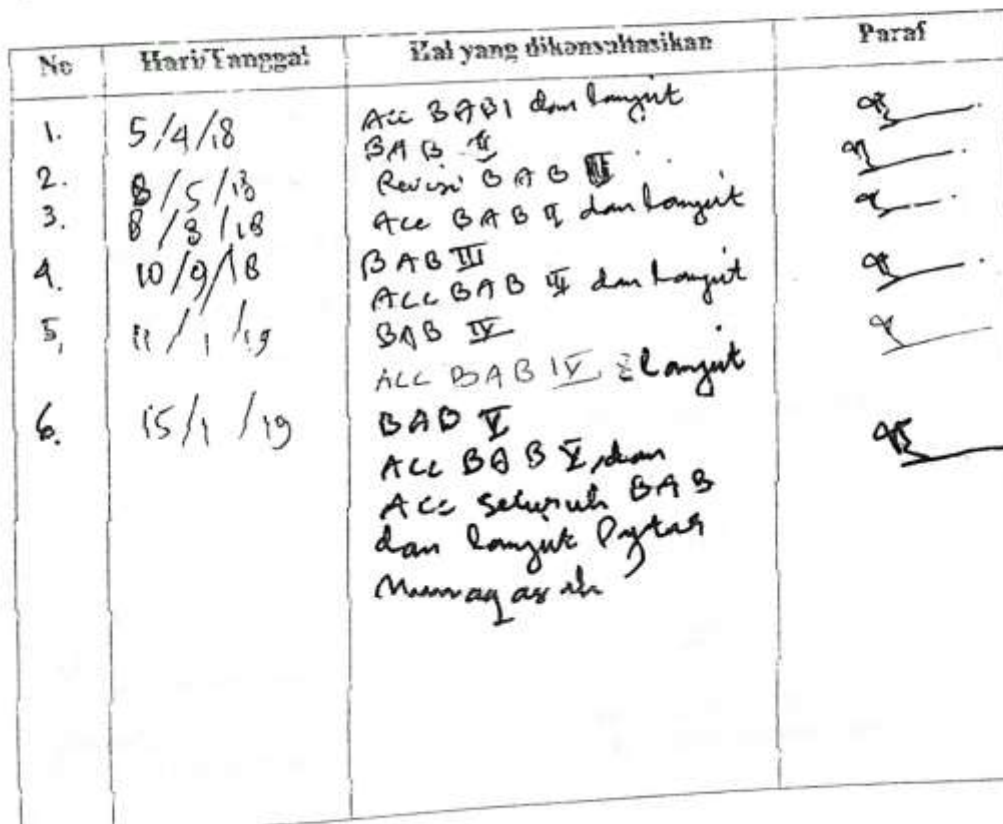 No Hari/Tanggal Hal yang dikonsultasikan Paraf
1. 5/4/18 Acc BAB I dan lanjut
BAB II
2. 8/5/18 Revisi BAB II
3. 8/8/18 Acc BAB II dan lanjut
BAB III
4. 10/9/18 ACC BAB III dan lanjut
BAB IV
5, 11/1/19 ACC BAB IV & lanjut
BAB V
6. 15/1/19 ACC BAB V, dan
ACC seluruh BAB
dan lanjut
Munaqasah